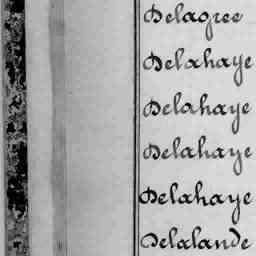 Delagree
Delahaye
Delahaye
Delahaye
Delahaye
Delalande